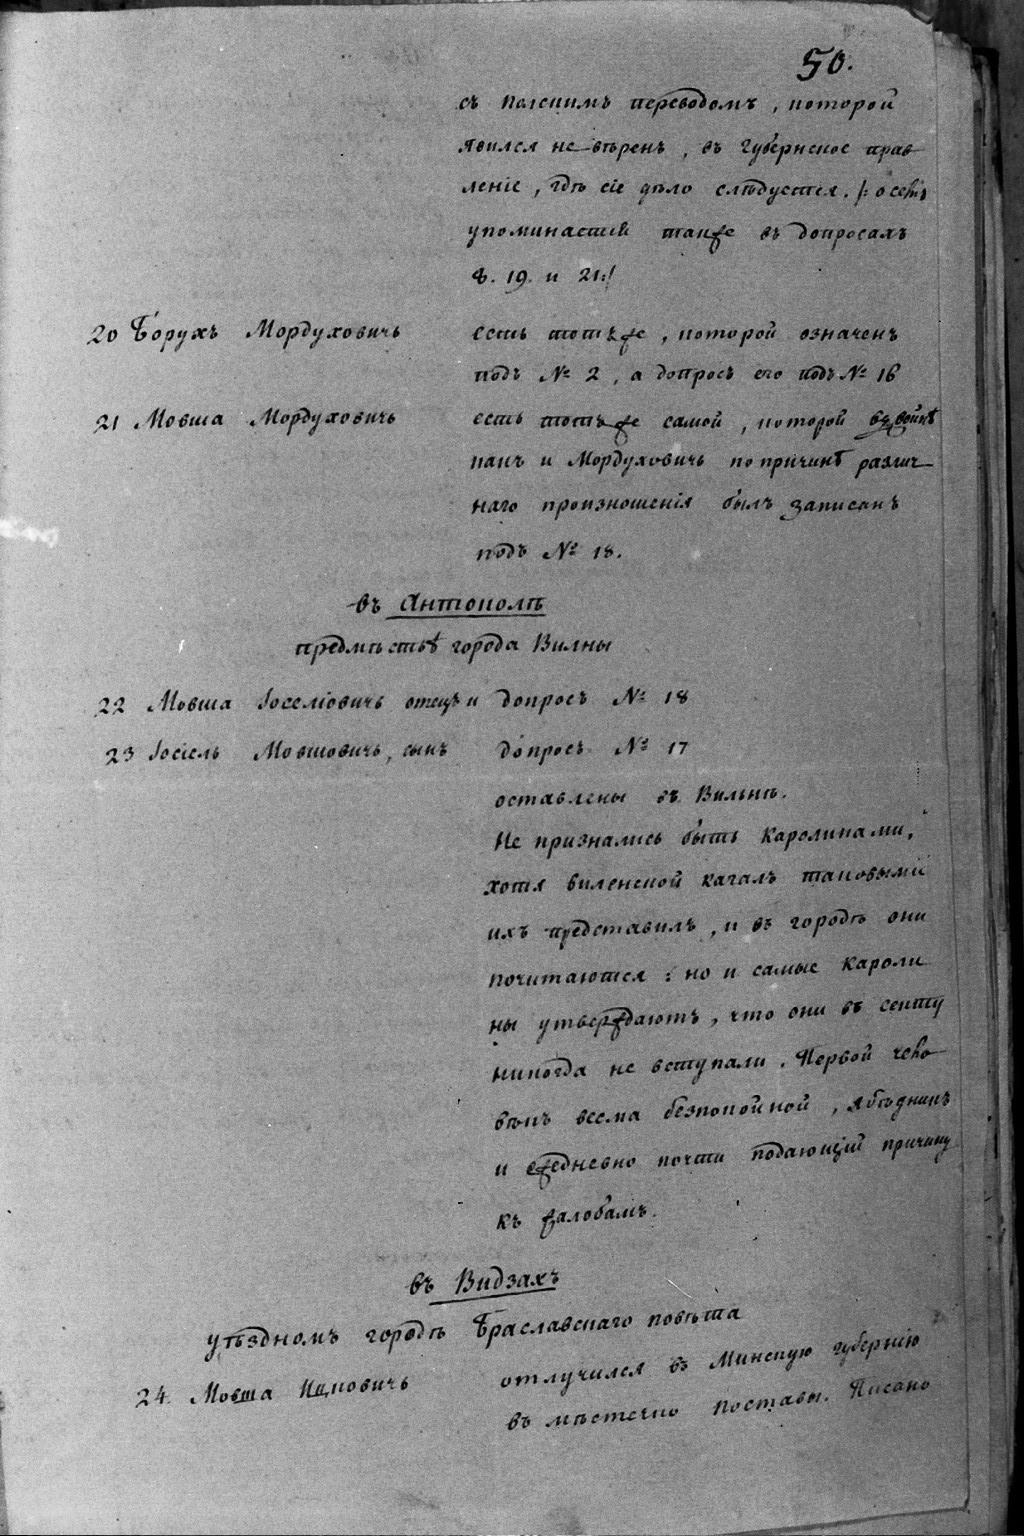 50.
съ полскимъ переводомъ, которой
явился не вѣренъ, въ губернское прав
леніе, гдѣ сіе дѣло слѣдуется. /: о семъ
упоминается также въ допросахъ
8. 19. и 21:/
20 Борухъ Мордуховичь есть тотъ же, которой означенъ
подъ № 2, а допросъ его подъ № 16
21 Мовша Мордуховичь есть тотъ же самой, которой
и Мордуховичь по причинѣ различ
наго произношенія былъ записанъ
подъ № 18.
въ Антополѣ
предмѣстьѣ города Вилны
22 Мовша Іоселіовичь отецъ и допросъ № 18
23 Іосіель Мовшовичь, сынъ допросъ № 17
оставлены въ Вильнѣ.
Не признались быть Каролинами,
хотя виленской кагалъ таковыми
ихъ представилъ, и въ городѣ они
почитаются: но и самые Кароли
ны утверждаютъ, что они въ секту
никогда не вступали. Первой чело
вѣкъ весма безпокойной, ябѣдникъ
и ежедневно почти подающій причину
къ жалобамъ.
въ Видзахъ
уѣздномъ городѣ Браславскаго повѣта
24. Мовша Ицковичь отлучился въ Минскую губернію
въ мѣстечко Поставы. Писано